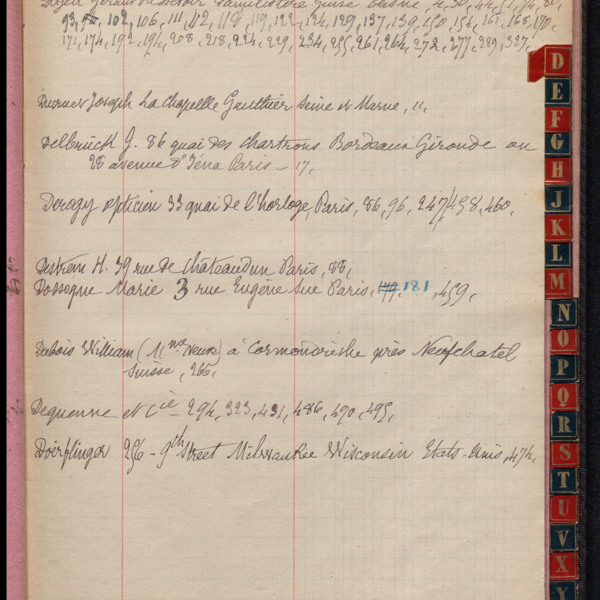 93, 102, 106, 111, 112, 118, 119, 122, 124, 129, 137, 139, 150, 154, 161, 168, 170,
171, 174, 192, 194, 208, 218, 224, 229, 234, 255, 261, 264, 272, 277, 289, 327,
Joseph La Chapelle Gauthier Seine et Marne, 11,
Delbrück J. 86 quai des Chartrons Bordeaux Gironde ou
28 avenue d'Iéna Paris - 17,
Derogy opticien 33 quai de l'horloge, Paris, 86, 96, 247, 458, 460,
Destrem H. 39 rue de Châteaudun Paris, 88,
Dossogne Marie 3 rue Eugène Sue Paris, 149, 181, 459,
Dubois William (Mme Veuve) à Cormondrèche près Neufchatel
Suisse, 266,
Dequenne et Cie - 294, 323, 431, 486, 490, 495,
Döerflinger 256 - 9th Street Milwaukee Wisconsin Etats-Unis, 474,
D
E
F
G
H
J
K
L
M
N
O
P
Q
R
S
T
U
V
X
Y